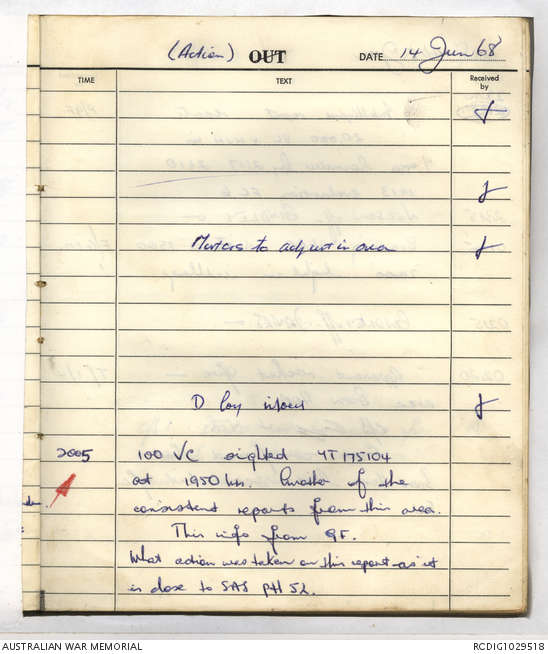 (Action) OUT DATE 14 Jun 68
TIME TEXT Received by
Mortars to adjust in area
D Coy informed
2005 100 VC sighted YT 175104
at 1950 hrs. Another of the
consistent reports from this area.
This info from 9F.
What action was taken on this report as it
is close to SAS ptl 52.
AUSTRALIAN WAR MEMORIAL RCDIG1029518